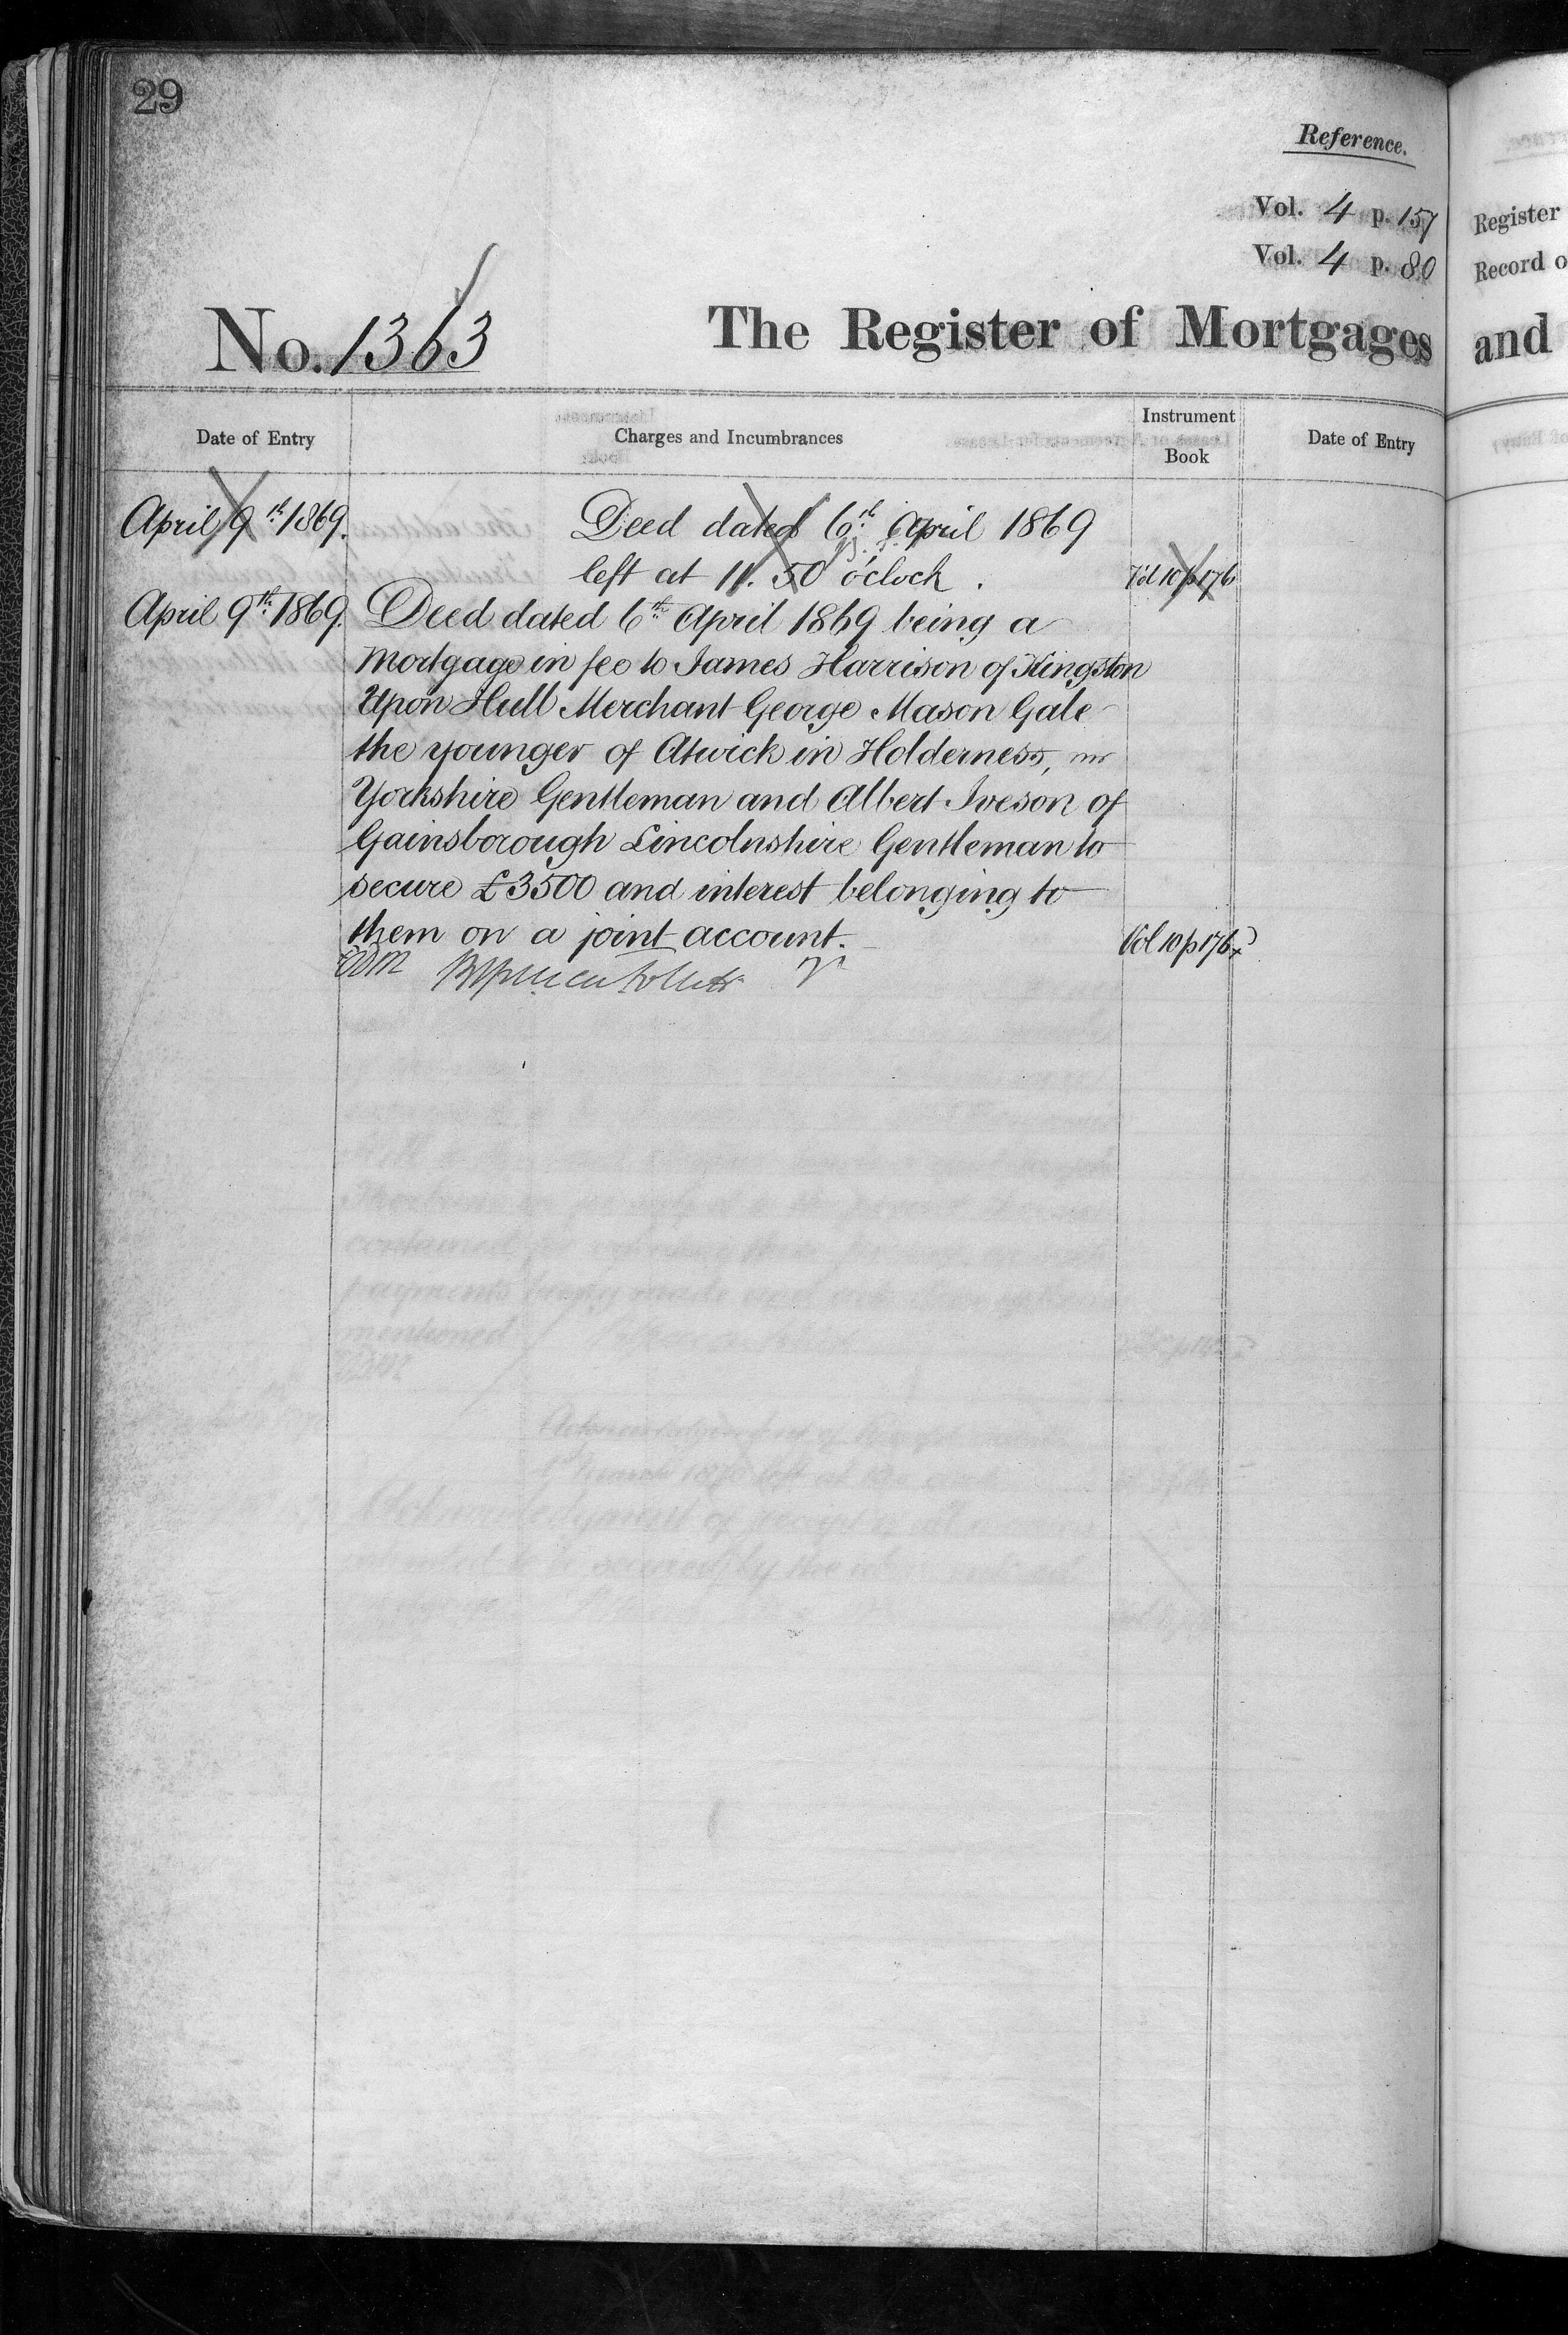 29
Reference.
Vol. 4 p. 157
Vol. 4 p. 80
No. 1363
The Register of Mortgages
Date of Entry
Charges and Incumbrances
Instrument Book
Date of Entry
April 9th 1869.
Deed dated 6th April 1869
left at 11.50 o'clock.
Vol 10 p 176
April 9th 1869.
Deed dated 6th April 1869 being a
Mortgage in fee to James Harrison of Kingston
Upon Hull Merchant George Mason Gale
the younger of Atwick in Holderness,
Yorkshire Gentleman and Albert Iveson of
Gainsborough Lincolnshire Gentleman to
secure £3500 and interest belonging to
them on a joint account.
Vol 10 p 176
Register
Record o
and